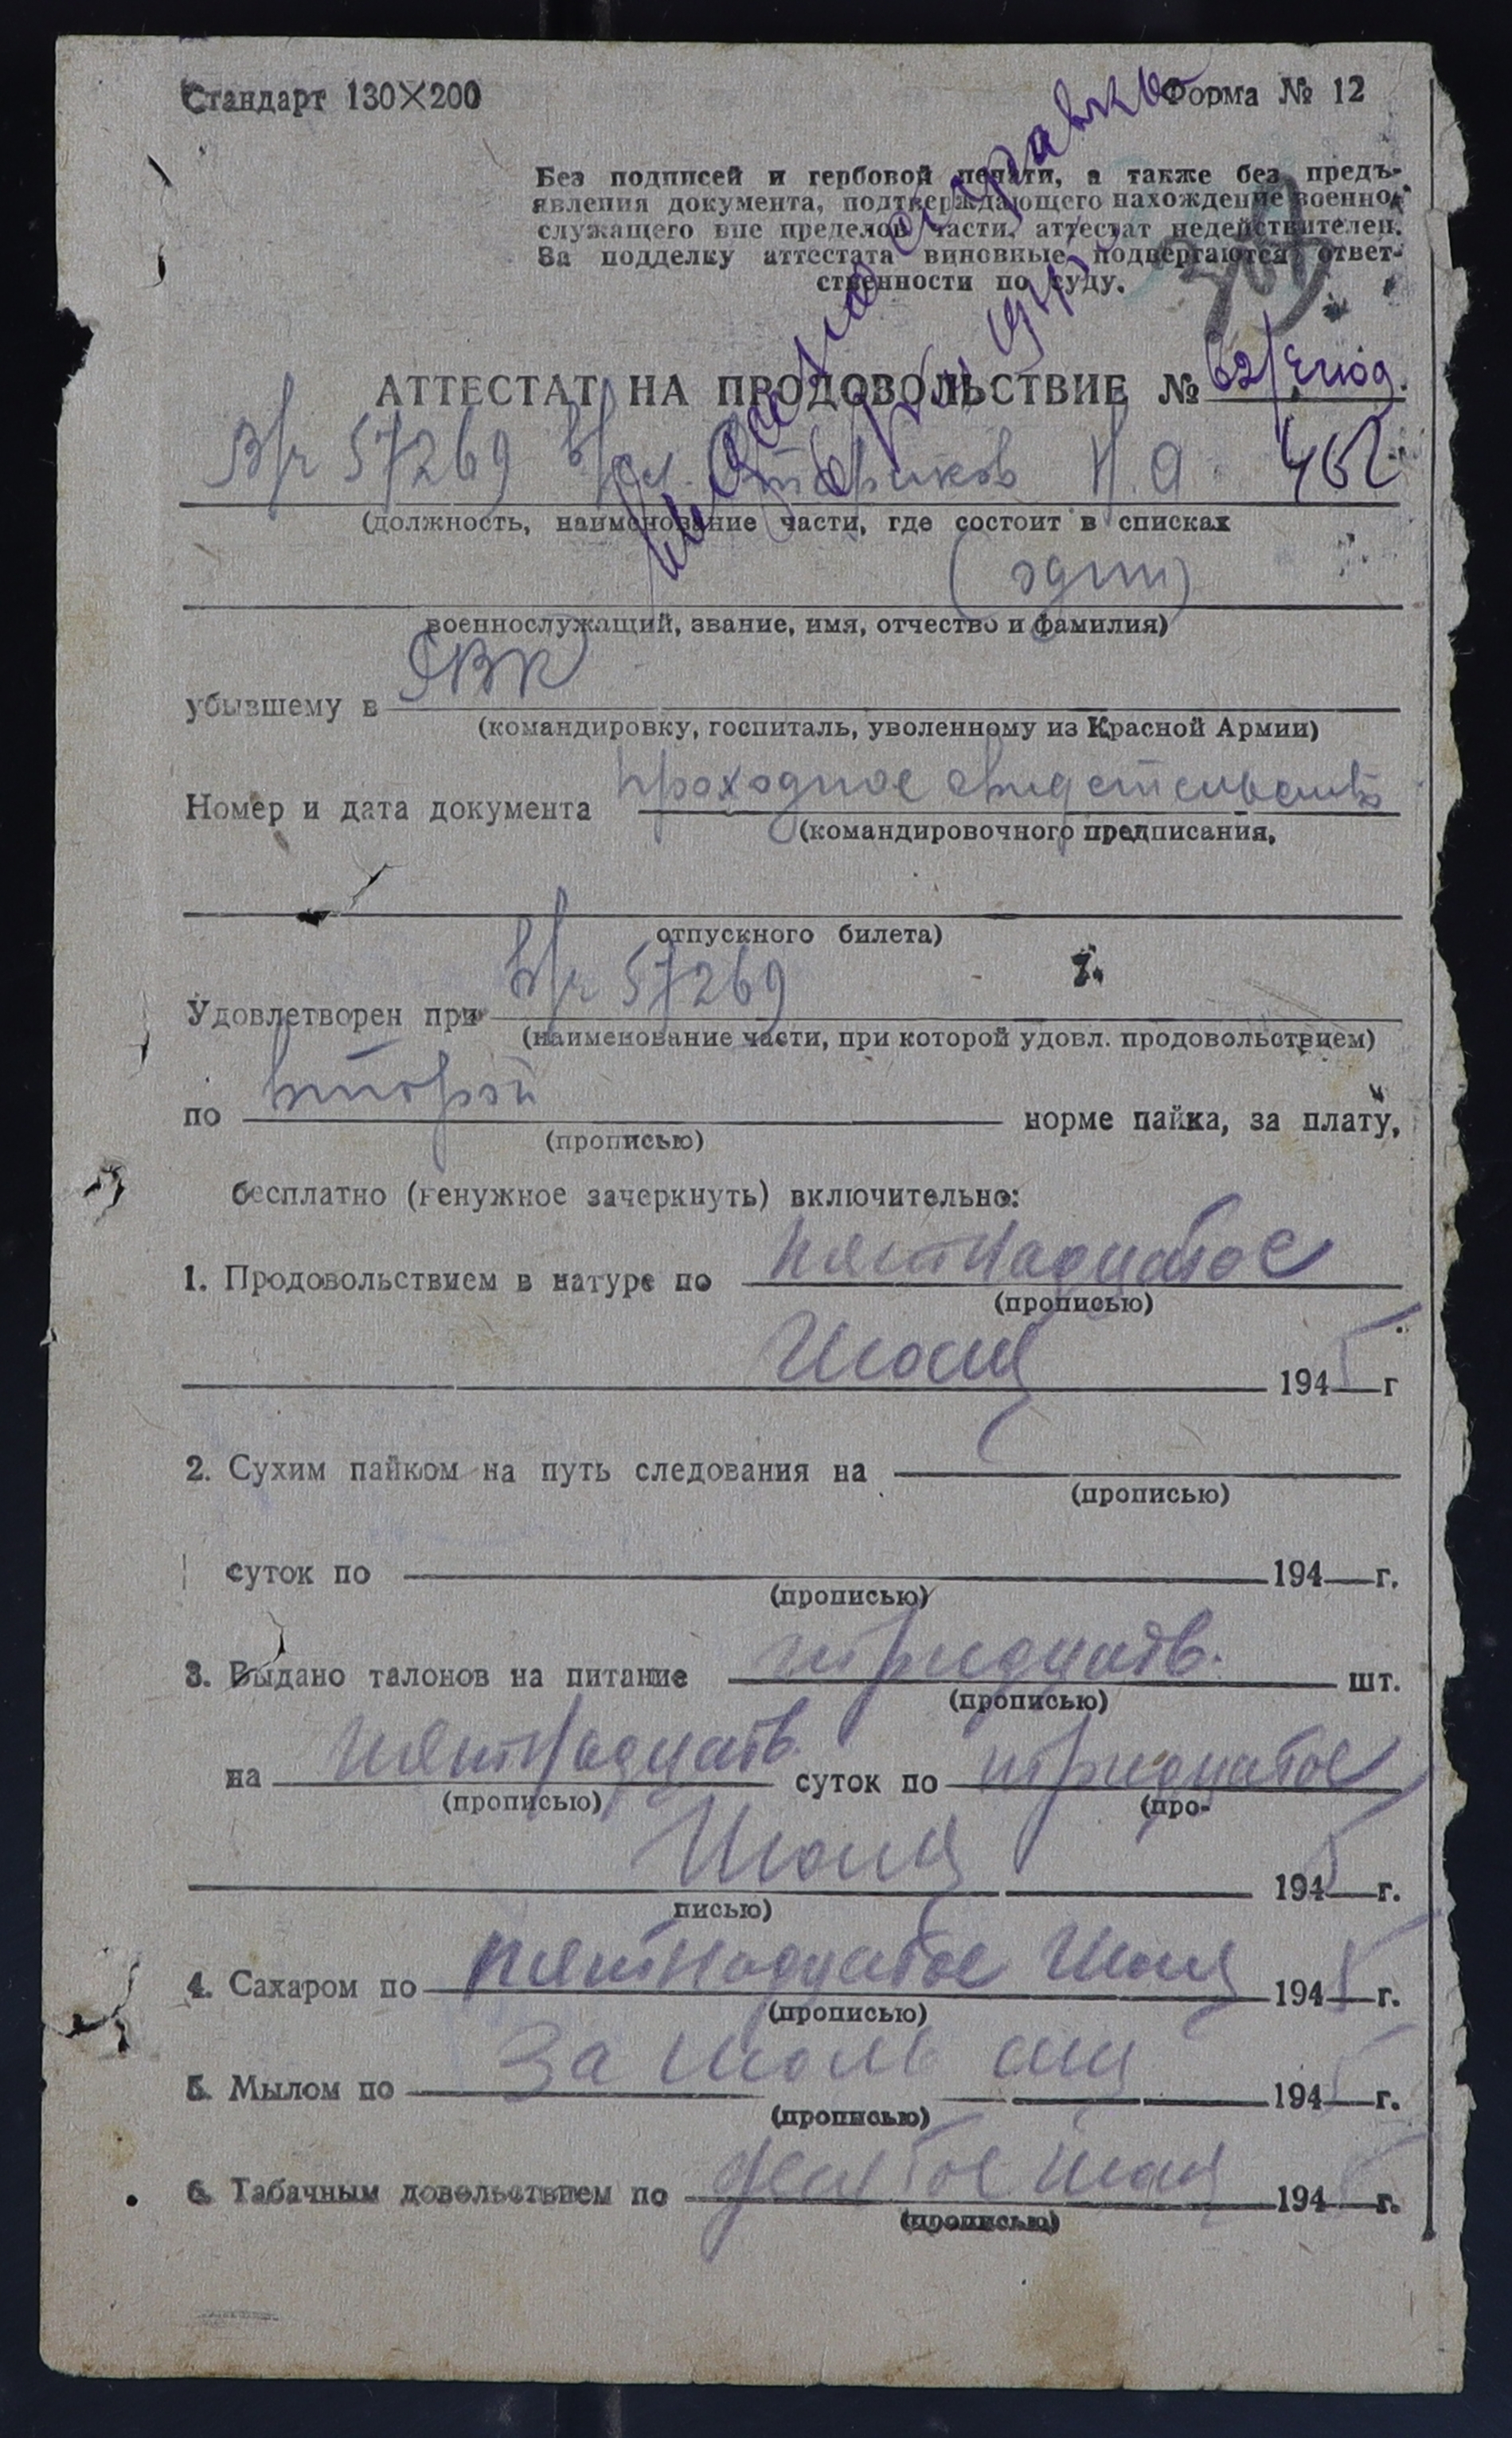 Стандарт 130×200
Форма № 12
Без подписей и гербовой печати, а также без предъ-
явления документа, подтверждающего нахождение военно-
служащего вне пределов части, аттестат недействителен.
За подделку аттестата виновные подвергаются ответ-
ственности по суду.
АТТЕСТАТ НА ПРОДОВОЛЬСТВИЕ № 62/
В/ч 57269 Н. А. 462
(должность, наименование части, где состоит в списках
(один)
военнослужащий, звание, имя, отчество и фамилия)
убывшему в РВК
(командировку, госпиталь, уволенному из Красной Армии)
Номер и дата документа проходное свидетельство
(командировочного предписания,
отпускного билета)
Удовлетворен при в/ч 57269
(наименование части, при которой удовл. продовольствием)
по второй норме пайка, за плату,
(прописью)
бесплатно (ненужное зачеркнуть) включительно:
1. Продовольствием в натуре по пятнадцатое
(прописью)
Июля 1945 г
2. Сухим пайком на путь следования на
(прописью)
суток по 194 г.
(прописью)
3. Выдано талонов на питание тридцать шт.
(прописью)
на пятнадцать суток по тридцатое
(прописью) (про-
Июля 1945 г.
писью)
4. Сахаром по пятнадцатое Июля 1945 г.
(прописью)
5. Мылом по За июль 1945 г.
(прописью)
6. Табачным довольствием по Июля 1945 г.
(прописью)